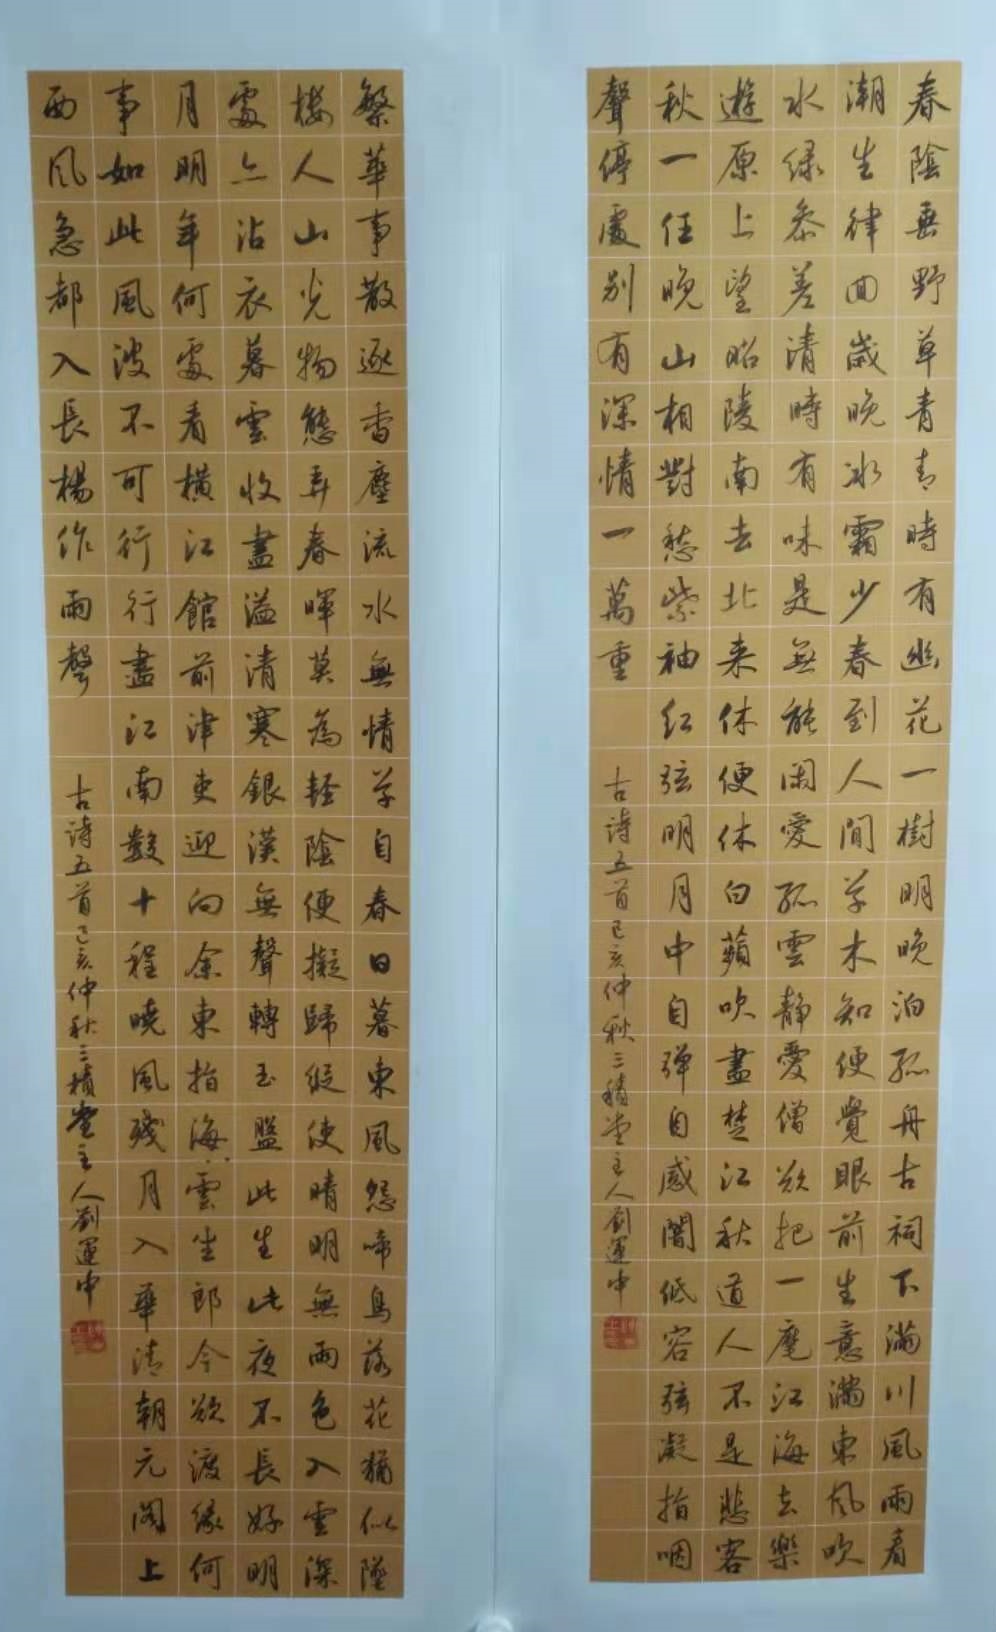 春陰垂野草青青時有幽花一樹明晚泊孤舟古祠下滿川風雨看
潮生律回歲晚冰霜少春到人間草木知便覺眼前生意滿東风吹
水緑參差清時有味是無能閑愛孤雲靜愛僧欲把一麾江海去樂
遊原上望昭陵南去北来休便休白蘋吹盡楚江秋道人不是悲客
秋一任晚山相對愁紫袖紅弦明月中自弾自感闇低容弦凝指咽
聲停處別有深情一萬重
古詩五首己亥仲秋三積堂主人劉運中
繁華事散逐香塵流水無情草自春日暮東風怨啼鳥落花猶似墜
樓人山光物態弄春暉莫為輕陰便擬歸縱使晴明無雨色入雲深
處亦沾衣暮雲收盡溢清寒銀漢無聲轉玉盤此生此夜不長好明
月明年何處看橫江館前津吏迎向余東指海雲生郎今欲渡緣何
事如此風波不可行行盡江南數十程曉風殘月入華清朝元閣上
西风急都入長楊作雨聲
古詩五首己亥仲秋三積堂主人劉運中